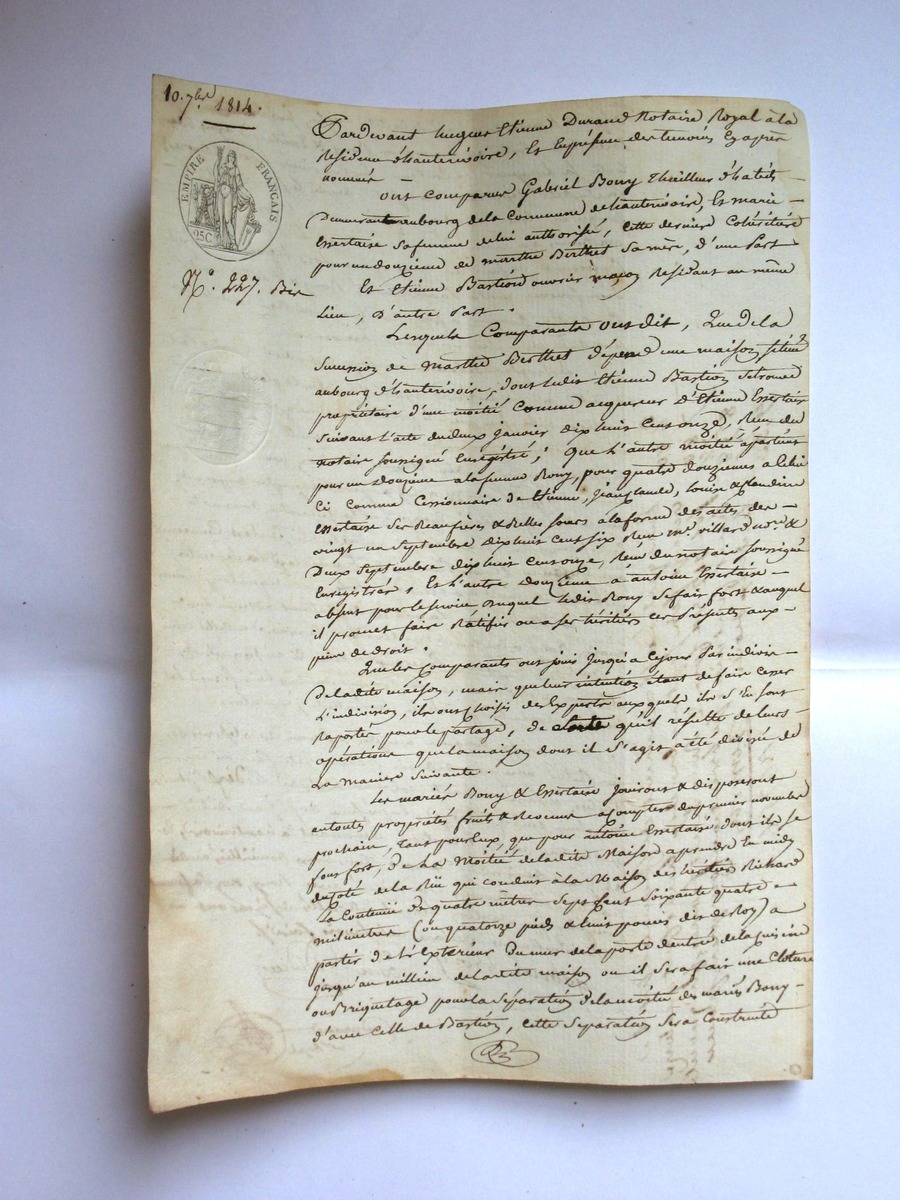 10. 7bre 1814.
EMPIRE FRANÇAIS
25C
N.° 227. Bis
Pardevant hugues Etienne Durand Notaire Royal à la
Residence d'hauterivoire, et En présence des temoins cy après
nommés —
ont comparus Gabriel Bony Thailleur d'habits
Demeurant aubourg de la Commune de hauterivoire, Et marie —
Essertaise sa femme de lui authorisée, cette derniere Cohéritière
pour un douzieme de marthe Berthet sa mère, d'une Part
Et Etienne Bastion ouvrier maçon Residant au même
Lieu, D'autre Part.
Lesquels Comparants ont dit, Que de la
Succession de Marthe Berthet dépend une maison située
aubourg d'hauterivoire, dont ledit Etienne Bastion se trouve
propriétaire d'une moitié comme acquereur d'Etienne Essertaise
Suivant l'acte du deux Janvier dix huit cent onze, Reçu du
notaire soussigné Enregistré; Que l'autre moitié apartient
pour un Douzieme a la femme Bony, pour quatre douziemes a celui
Ci comme Cessionnaire de Etienne, Jean claude, Louise & Claudine
Essertaise ses Beaufrères & Belles sœurs à la forme des actes des —
vingt un septembre dix huit cent six Reçu me. villard nore. &
Deux septembre dix huit cent onze, Reçu du notaire soussigné
Enregistrés, Et L'autre douzieme a antoine Essertaise —
absent pour le service Duquel ledit Bony se fait fort & auquel
il promet faire Ratifier ou a ses héritiers ces Présentes aux —
peine de droit.
Que les Comparants ont joui jusqu'a ce jour Par indivis —
De la dite maison, mais que leur intention étant de faire cesser
L'indivision, ils ont choisis des Experts auxquels ils s'En sont
Raportés pour le partage, de sorte qu'il résulte de leurs —
opérations que la maison dont il s'agit a été divisée de
La maniere suivante.
Les mariés Bony & Essertaise Jouiront & disposeront
en toutes propriétés fruits & Revenus a compter du premier novembre
prochain, tant pour Eux, que pour antoine Essertaise dont ils se
font fort, De La Moitié de la dite Maison a prendre En midy
du coté de la Rüe qui conduit à la Maison des héritiers Richard
La Contenüe de quatre metres Sept Cent Soixante quatre =
milimetres (ou quatorze pieds & huit pouces dit de Roy) a
partir de L'Extérieur Du mur de la porte d'entrée de la cuisine
jusqu'au millieu de la dite maison ou il sera fait une Cloture
ou Briquetage pour la séparation de la moitié des mariés Bony —
d'avec Celle de Bastion, cette Séparation sera Construite